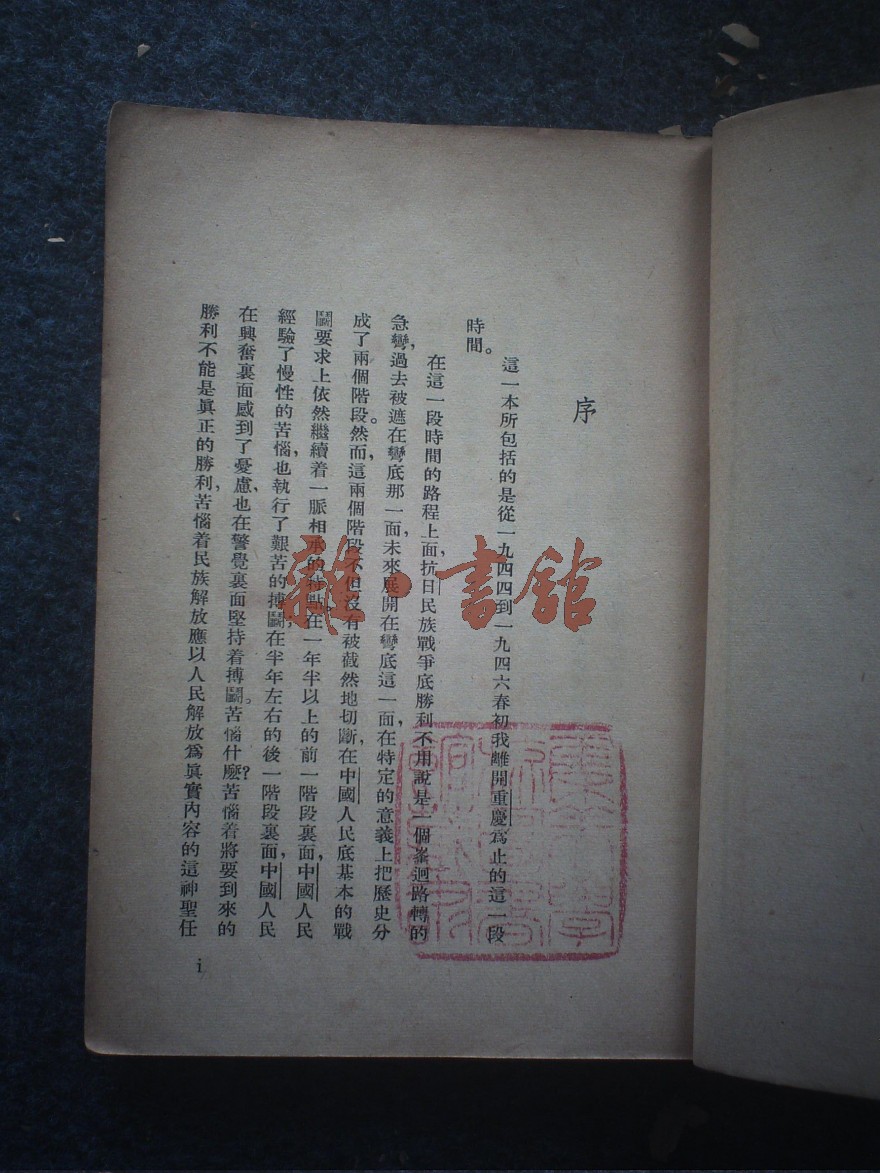 序
這一本所包括的是從一九四四到一九四六春初我離開重慶爲止的這一段
時間。
在這一段時間的路程上面，抗日民族戰爭底勝利不用說是一個峯迴路轉的
急彎，過去被遮在彎底那一面，未來展開在彎底這一面，在特定的意義上把歷史分
成了兩個階段。然而，這兩個階段不但沒有被截然地切斷，在中國人民底基本的戰
鬭要求上依然繼續着一脈相承的特點。在一年半以上的前一階段裏面，中國人民
經驗了慢性的苦惱，也執行了艱苦的搏鬭，在半年左右的後一階段裏面，中國人民
在興奮裏面感到了憂慮，也在警覺裏面堅持着搏鬭。苦惱什麼？苦惱着將要到來的
勝利不能是眞正的勝利，苦惱着民族解放應以人民解放爲眞實內容的這神聖任
i
雜·書館